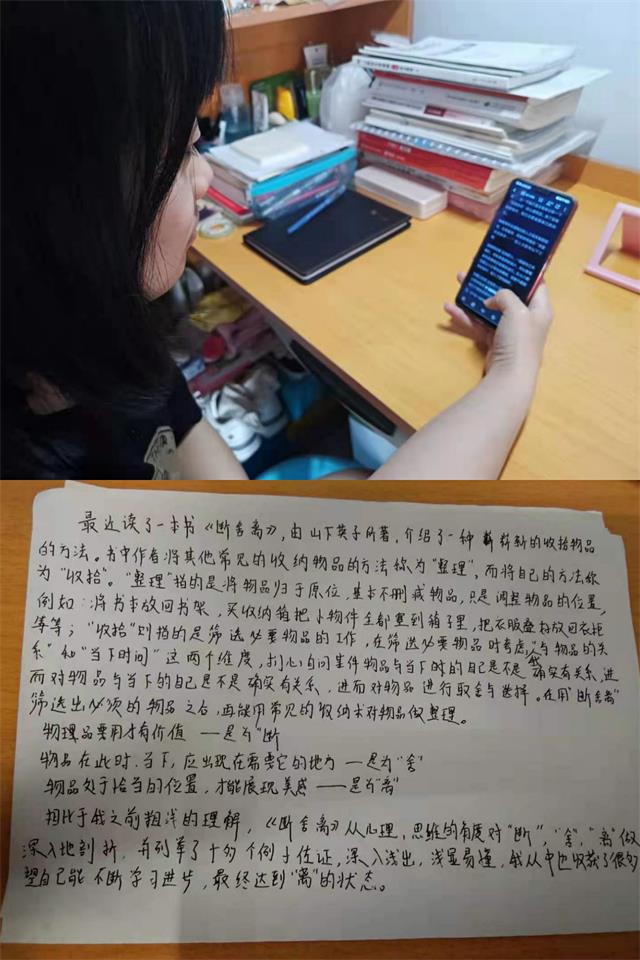 最近读了一本书《断舍离》,由山下英子所著,介绍了一种崭新的收拾物品
的方法。书中作者将其他常见的收纳物品的方法称为“整理”,而将自己的方法称
为“收拾”。“整理”指的是将物品归于原位,基本不删减物品,只是调整物品的位置,
例如:将书本放回书架,买收纳箱把小物件全都塞到箱子里,把衣服叠好放回衣柜
等等;“收拾”则指的是筛选必要物品的工作,在筛选必要物品时考虑“我与物品的关
系”和“当下时间”这两个维度,扪心自问某件物品与当下时的自己是不是确实有关系,进
而对物品与当下的自己是不是确实有关系,进而对物品进行取舍与选择。在用“断舍离”
筛选出必须的物品之后,再能用常见的收纳术对物品做整理。
物理品要用才有价值 ——是为“断
物品在此时、当下,应出现在需要它的地方 —是为“舍”
物品处于恰当的位置,才能展现美感 ——是为“离”
相比于我之前粗浅的理解,《断舍离》从心理,思维的角度对“断”,“舍”,“离”做
深入地剖析,并列举了十多个例子佐证,深入浅出,浅显易懂,我从中也收获了很多
望自己能不断学习进步,最终达到“离”的状态。